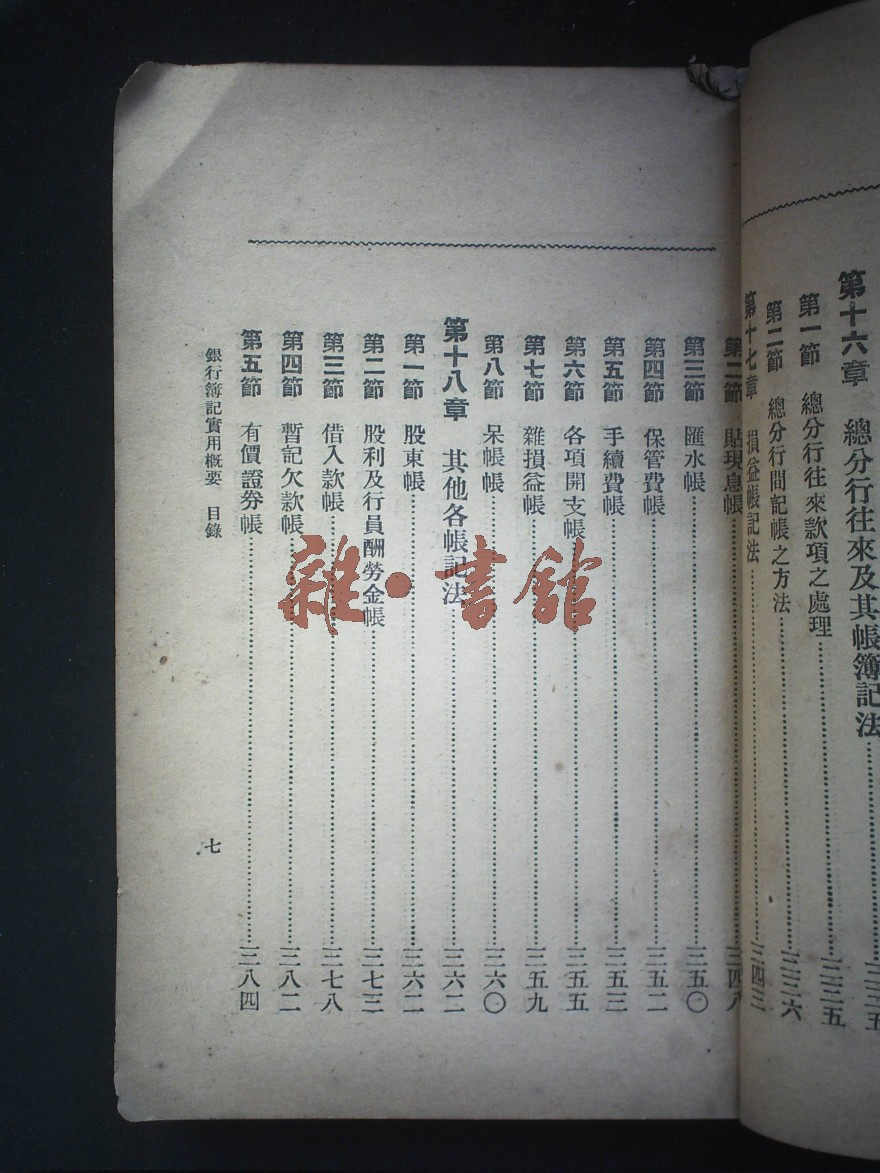 第十六章　總分行往來及其帳簿記法……三三五
第一節　總分行往來款項之處理……三三五
第二節　總分行間記帳之方法……三三六
第十七章　損益帳記法……三四三
第二節　貼現息帳……三四八
第三節　匯水帳……三五〇
第四節　保管費帳……三五二
第五節　手續費帳……三五三
第六節　各項開支帳……三五五
第七節　雜損益帳……三五九
第八節　呆帳帳……三六〇
第十八章　其他各帳記法……三六二
第一節　股東帳……三六二
第二節　股利及行員酬勞金帳……三七三
第三節　借入款帳……三七八
第四節　暫記欠款帳……三八二
第五節　有價證券帳……三八四
銀行簿記實用概要　目錄
七
雜·書館